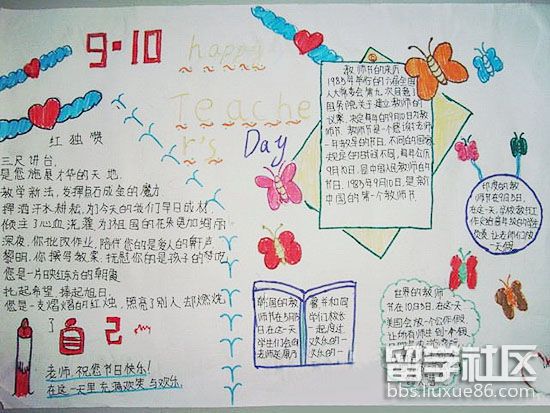 9·10
happy
Teache
r's
Day
红独赞
三尺讲台,
是您施展才华的天地.
教学新法,发挥点石成金的魔力
挥洒汗水耕耘,为今天的我们早日成材
倾注了心血浇灌为祖国的花朵更加绚丽
深夜,你批改作业,陪伴您的是爱人的鼾声
黎明,你撰写教案,抚慰你的是孩子的梦呓
您是一片映红东方的朝霞
托起希望,捧起旭日,
您是一支熠熠的红烛,照亮了别人,却燃烧
了自己
老师,祝您节日快乐!
在这一天里充满欢笑与欢乐.
教师节的来历
1985年举行的六届全国
人大常委会第九次
国务院关于建立教师的
议案,决定每年的9月10日为教
师节.教师节是一个感谢老师
一年教导的节日,不同的国家
规定的时间不同,每年公历
9月10日,是中国人民教师的
节日,1985年9月10日,是新
中国的第一个教师节.
印度的教
师节在9月5日,
在这一天
韩国的教
师节在5月15
日在这一天
学生们会向
老师送康乃
馨并和同
学们校长
一起度过
欢乐的一
世界的教师
节在10月5日,在这天
美国会放一个公休假
留学社区
bbs.liuxue86.com